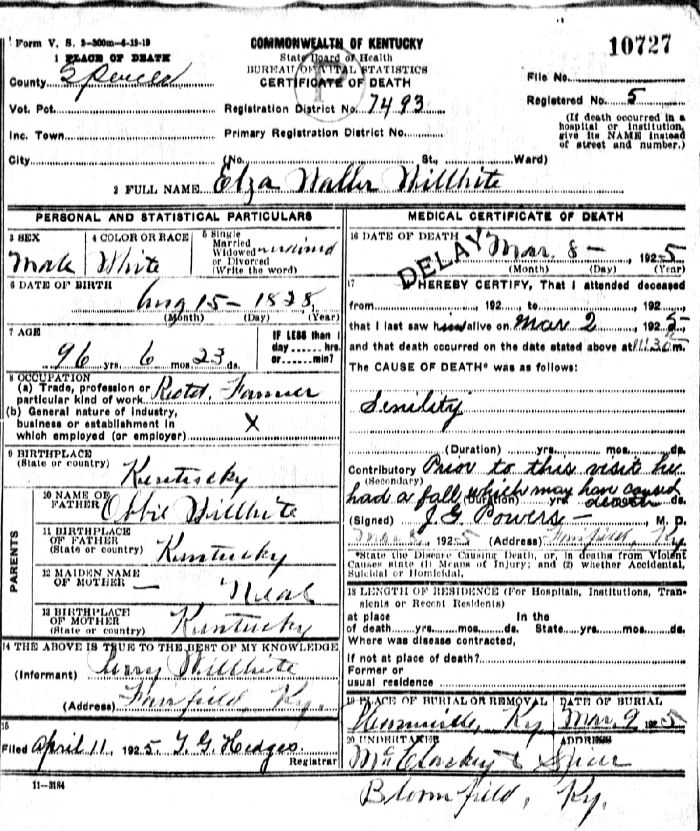 Form V. S. 3-300m-6-19-19
COMMONWEALTH OF KENTUCKY
10727
1 PLACE OF DEATH
State Board of Health
BUREAU OF VITAL STATISTICS
CERTIFICATE OF DEATH
County Spencer
File No.
Vot. Pct.
Registration District No. 7493
Registered No. 5
Inc. Town
Primary Registration District No.
(If death occurred in a hospital or institution, give its NAME instead of street and number.)
City (No. St., Ward)
2 FULL NAME Elza Waller Willhite
PERSONAL AND STATISTICAL PARTICULARS
3 SEX Male
4 COLOR OR RACE White
5 Single Married Widowed or Divorced (Write the word)
6 DATE OF BIRTH Aug 15 - 1828
(Month) (Day) (Year)
7 AGE
96 yrs. 6 mos. 23 ds.
IF LESS than 1 day hrs. or min?
8 OCCUPATION
(a) Trade, profession or particular kind of work Farmer
(b) General nature of industry, business or establishment in which employed (or employer) X
9 BIRTHPLACE
(State or country) Kentucky
PARENTS
10 NAME OF FATHER Obbie Willhite
11 BIRTHPLACE OF FATHER (State or country) Kentucky
12 MAIDEN NAME OF MOTHER — Neal
13 BIRTHPLACE OF MOTHER (State or country) Kentucky
14 THE ABOVE IS TRUE TO THE BEST OF MY KNOWLEDGE
(Informant) Perry Willhite
(Address) Fairfield, Ky.
15
Filed April 11, 1925. T. G. Hedges
Registrar
11-3184
MEDICAL CERTIFICATE OF DEATH
16 DATE OF DEATH Mar. 8 - , 1925
(Month) (Day) (Year)
DELAY
17 I HEREBY CERTIFY, That I attended deceased
from , 192 , to , 192 ,
that I last saw him alive on Mar 2 , 1925
and that death occurred on the date stated above at 11:30 m.
The CAUSE OF DEATH* was as follows:
Senility
(Duration) yrs. mos. ds.
Contributory Prior to this visit he
(Secondary)
had a fall which may have caused
(Duration) yrs. death ds.
(Signed) J. G. Powers - M. D.
, 1925 (Address) Fairfield, Ky.
*State the Disease Causing Death, or, in deaths from Violent Causes state (1) Means of Injury; and (2) whether Accidental, Suicidal or Homicidal.
18 LENGTH OF RESIDENCE (For Hospitals, Institutions, Transients or Recent Residents)
at place In the
of death yrs. mos. ds. State yrs. mos. ds.
Where was disease contracted,
if not at place of death?
Former or
usual residence
19 PLACE OF BURIAL OR REMOVAL
DATE OF BURIAL
Ky Mar. 9 1925
20 UNDERTAKER
ADDRESS
McClaskey &
Bloomfield, Ky.